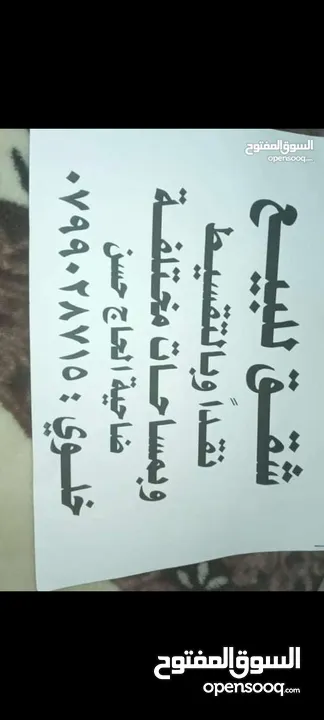 السوق المفتوح
opensooq.com
شقق للبيع
نقداً وبالتقسيط
وبمساحات مختلفة
ضاحية الحاج حسن
خلوي : ٠٧٩٩٠٢٨٧١٥
السوق المفتوح
opensooq.com